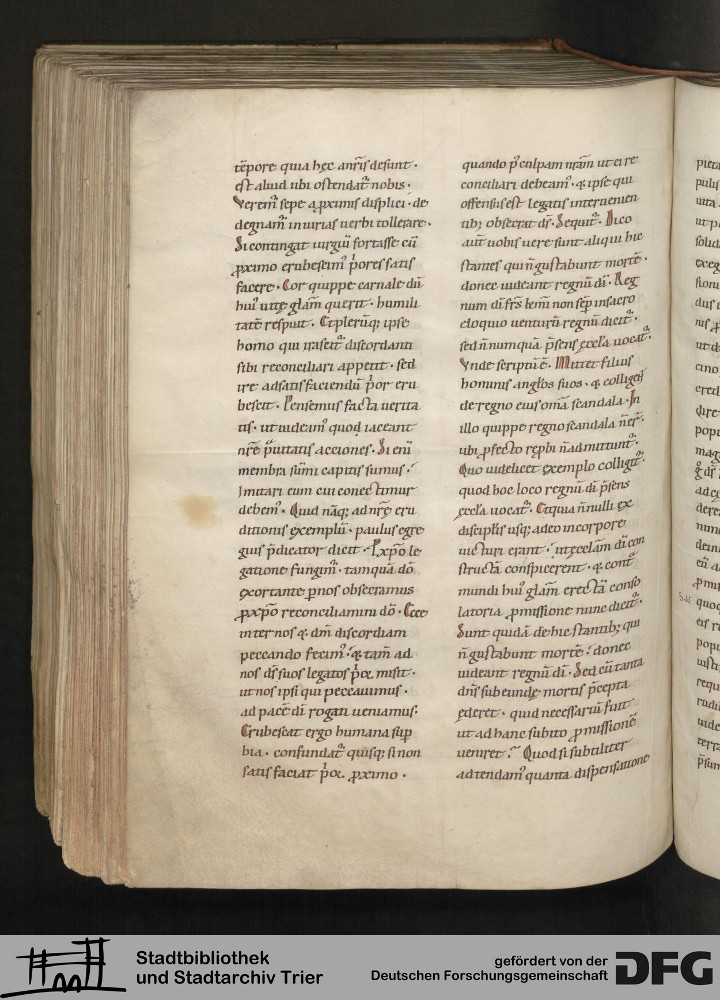 tēpore quia hęc anr̄is desunt·
est aliud ubi ostendat̄ nobis·
Veremꝰ sepe a ꝓximis displici· de
degnam̄ iniurias uerbi tollerare·
Si contingat iurgiū fortasse cū
ꝓximo erubescimꝰ p̄ores satis
facere· Cor quippe carnale dū
huiꝰ uitę glām querit· humili
tatē respuit· Et plerūq; ipse
homo qui irascit̄ discordanti
sibi reconciliari appetit· sed
ire ad satisfaciendū p̄or eru
bescit· Pensemus facta uerita
tis· ut uideamꝰ quod iaceant
nr̄e p̄uitatis acciones· Si enī
membra sūmi capitis sumus·
Imitari eum cui conectimur
debemꝰ· Quid nāq; ad nr̄ę eru
ditionis exemplū· paulus egre
gius p̄dicator dicit· P xp̄o le
gatione fungimꝰ· tamquā dō
exortante p nos obsecramus
ꝓ xp̄o reconciliamini dō· Ecce
inter nos & dm̄ discordiam
peccando fecimꝰ· & tam̄ ad
nos ds̄ suos legatos misit·
ut nos ipsi qui peccauimus·
ad pacē dī rogati ueniamus·
Erubescat ergo humana sup
bia· confundat̄ quisq; si non
satis faciat ꝓximo·
quando p̄ culpam nr̄am ut ei re
conciliari debeamꝰ· & ipse qui
offensus est legatis interuenien
tib; obsecrat ds̄· Sequit̄· Dico
aut̄ uobis uere sunt aliqui hic
stantes qui n̄ gustabunt mortē·
donec uideant regnū dī· Reg
num dī frs̄ kmī non sēp in sacro
eloquio uenturū regnū dicit̄·
sed n̄ numquā p̄sens eccła uocat̄·
Vnde scriptū ē· Mittet filius
hominis angłos suos· & colligent
de regno eius om̄a scandala· In
illo quippe regno scandala n̄ er̄·
ubi ꝓfecto rep̄bi n̄ admittunt̄·
Quo uidelicet exemplo colligit̄·
quod hoc loco regnū dī p̄sens
ęccła uocat̄· Et quia n̄nulli ex
discipłis usq; adeo in corpore
uicturi erant· ut ęccłam dī con
structā conspicerent· & cont̄
mundi huiꝰ glām erectā conso
latoria ꝓmissione nunc dicit̄·
Sunt quidā de hic stantib; qui
n̄ gustabunt mortē· donec
uideant regnū dī· Sed cū tanta
dn̄s subeunde mortis p̄cepta
ederet· quid necessariū fuit
ut ad hanc subito ꝓmissionē
ueniret· Quod si subtiliter
adtendamꝰ quanta dispensatione
Stadtbibliothek
und Stadtarchiv Trier
gefördert von der
Deutschen Forschungsgemeinschaft
DFG